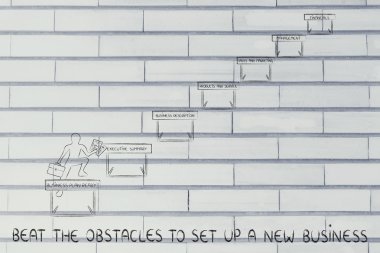 FINANCIALS
MANAGEMENT
SALES AND MARKETING
PRODUCTS AND SERVICE
BUSINESS DESCRIPTION
EXECUTIVE SUMMARY
BUSINESS PLAN READY
BEAT THE OBSTACLES TO SET UP A NEW BUSINESS